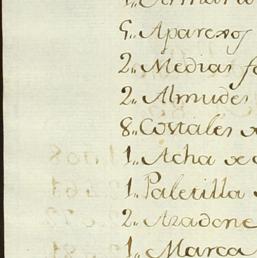 5,, Aparexos
2,, Medias
2,, Almudes
8,, Costales
1,, Acha de
1,, Paletilla
2,, Azadone
1,, Marca